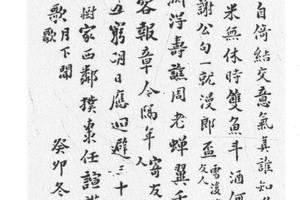 自倚結交意氣真誰知
米無休時雙魚斗酒何
謝公句一就漫郎盃 雪後 友人
浮壽譙周老蟬翼
客報章今隔年 寄友人
五窮明日應迴避 十
樹家西鄰撲棗任諠
歌 月下聞歌
癸卯冬